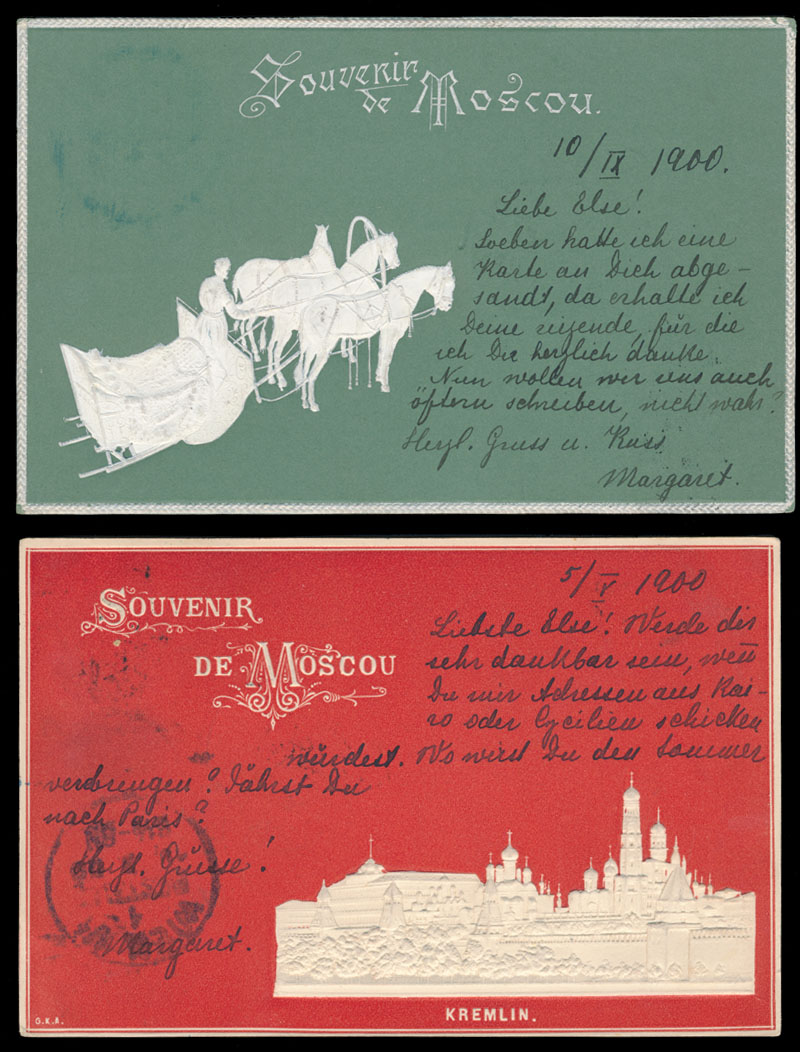 Souvenir
de Moscou.
10/IX 1900.
Liebe Else!
Soeben hatte ich eine
Karte an Dich abge-
sandt, da erhalte ich
Deine reizende, für die
ich Dir herzlich danke.
Nun wollen wir uns auch
öftern schreiben, nicht wahr?
Herzl. Gruss u. Kuss
Margaret.
SOUVENIR
DE MOSCOU
5/V 1900
Liebste Else! Werde dir
sehr dankbar sein, wenn
Du mir Adressen aus Kai-
ro oder Cycilien schicken
würdest. Wo wirst Du den Sommer
verbringen? Fährst Du
nach Paris?
Herzl. Grüsse!
Margaret.
KREMLIN.
G.K.A.